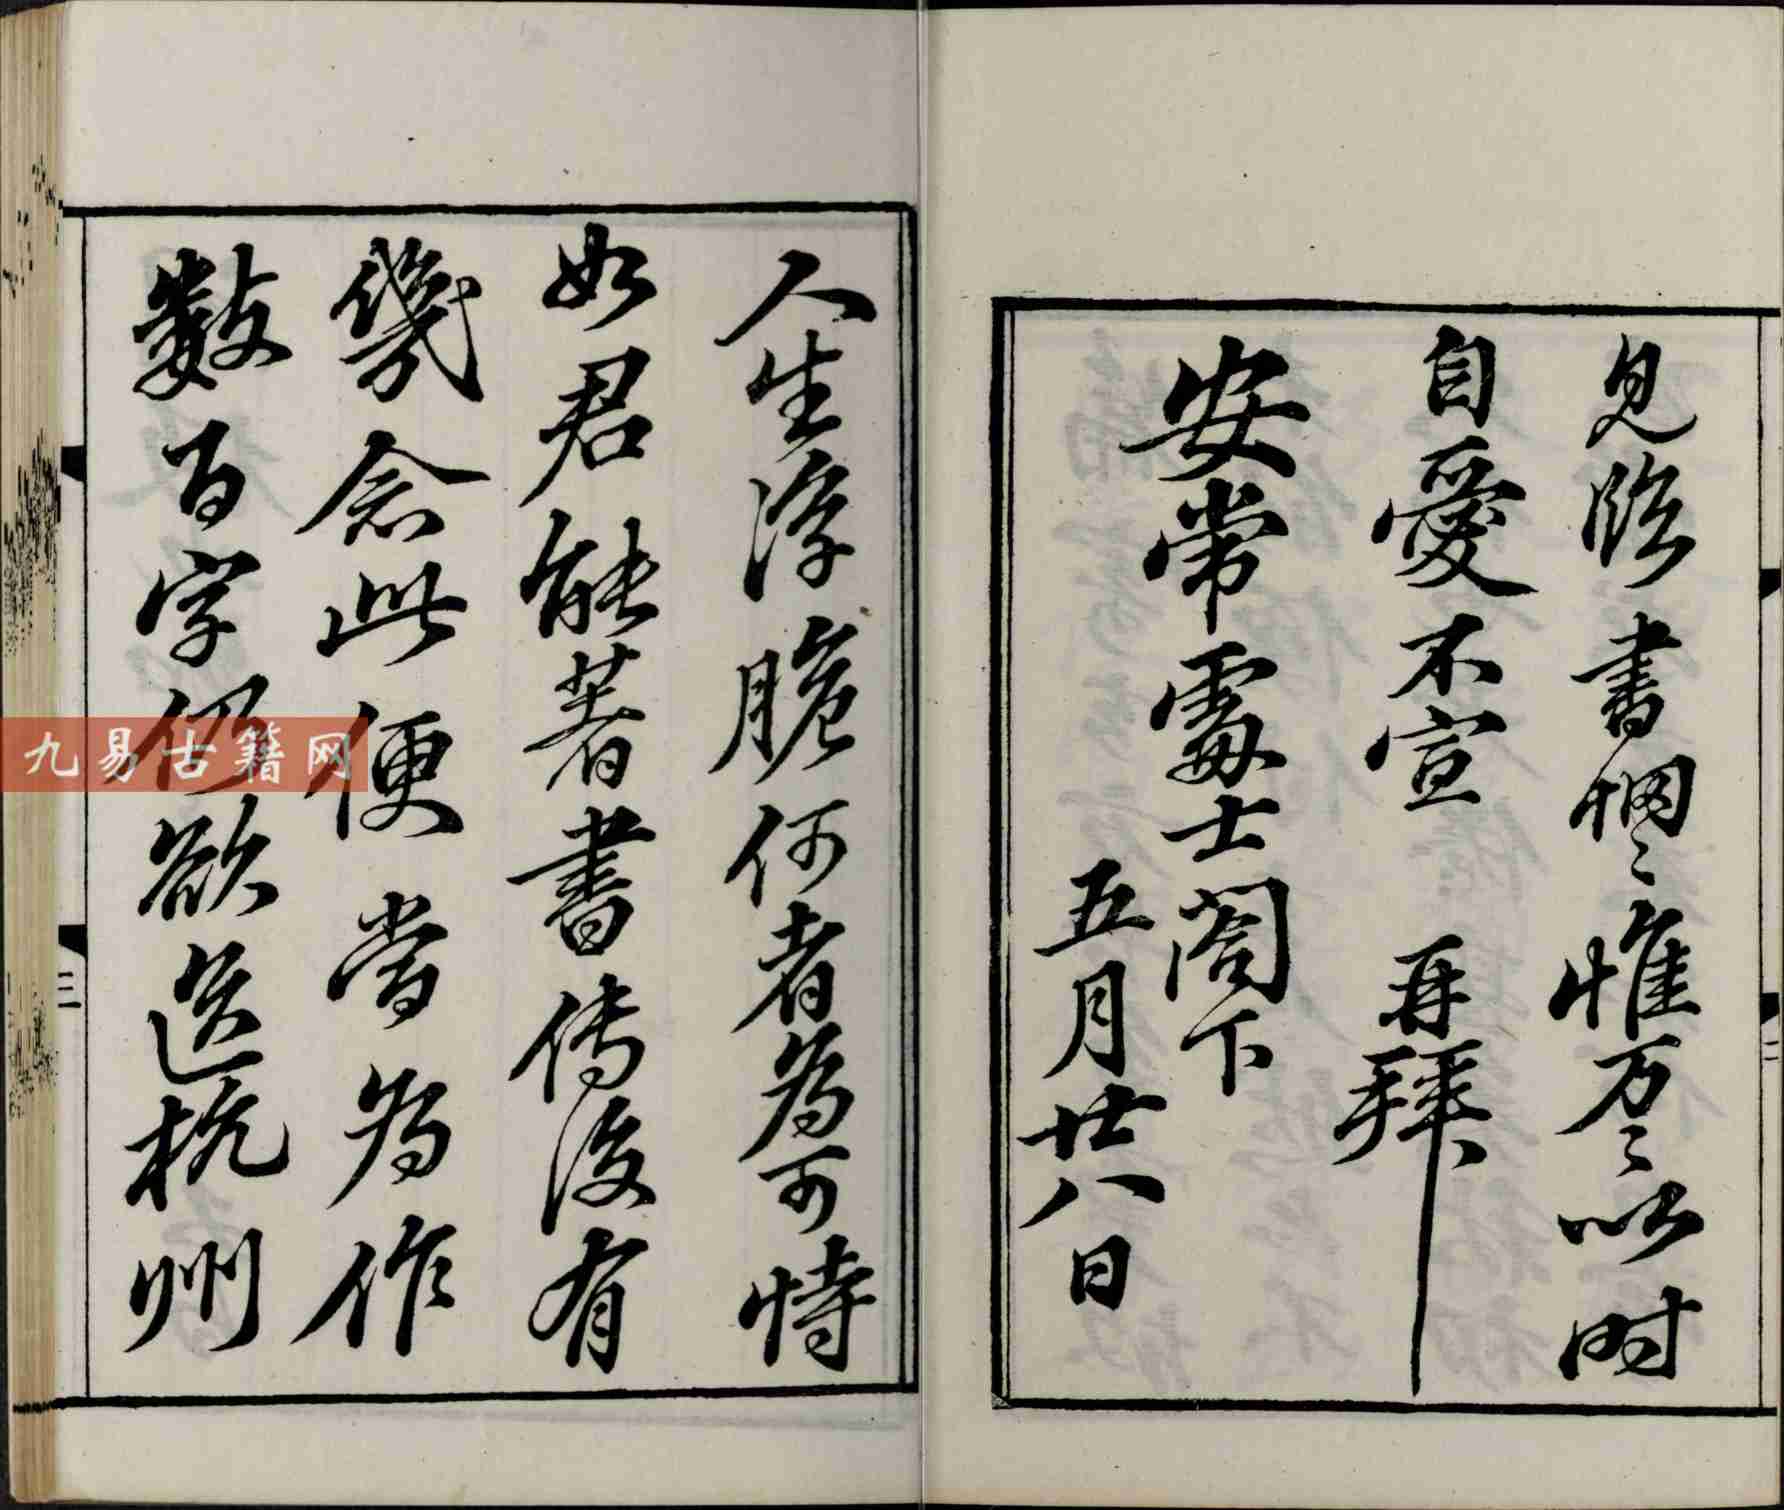 見臨書惘〻惟万〻以時
自愛不宣 再拜
安常處士閣下
五月廿八日
二
人生浮脆何者為可恃
如君能著書傳後有
幾念此便當為作
數百字仍欲送杭州
三
九易古籍网